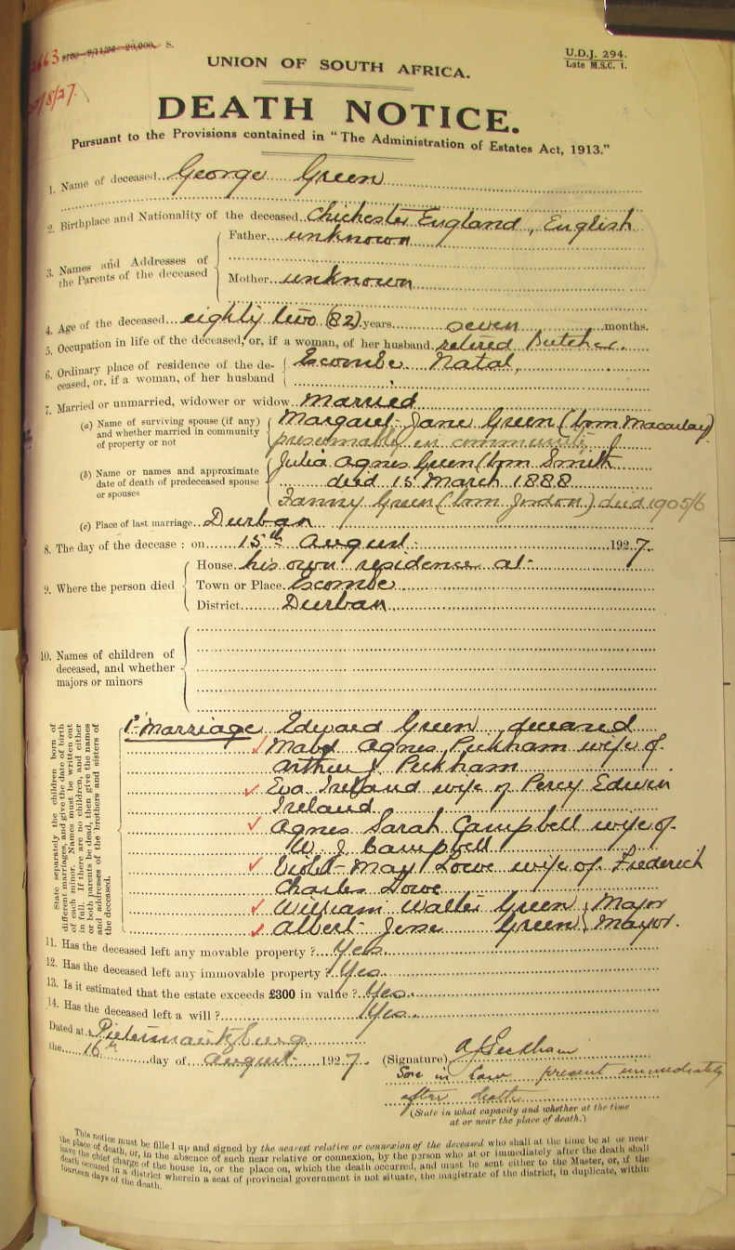 UNION OF SOUTH AFRICA.
U.D.J. 294.
Late M.S.C. 1.
DEATH NOTICE.
Pursuant to the Provisions contained in "The Administration of Estates Act, 1913."
1. Name of deceased George Green
2. Birthplace and Nationality of the deceased Chichester England, English
3. Names and Addresses of the Parents of the deceased
Father unknown
Mother unknown
4. Age of the deceased eighty two (82) years seven months.
5. Occupation in life of the deceased, or, if a woman, of her husband retired Butcher.
6. Ordinary place of residence of the de-
ceased, or, if a woman, of her husband
Escombe Natal
7. Married or unmarried, widower or widow Married
(a) Name of surviving spouse (if any)
and whether married in community
of property or not
Margaret Jane Green (born Macaulay)
presumably in community
(b) Name or names and approximate
date of death of predeceased spouse
or spouses
Julia Agnes Green (born Smith
died 15 March 1888
Fanny Green (born Jordon) died 1905/6
(c) Place of last marriage Durban
8. The day of the decease: on 15th August 1927.
9. Where the person died
House his own residence at
Town or Place Escombe
District Durban
10. Names of children of
deceased, and whether
majors or minors
State separately the children born of
different marriages, and give the date of birth
of each minor. Names must be written out
in full. If there are no children, and either
or both parents be dead, then give the names
and addresses of the brothers and sisters of
the deceased.
1st Marriage Edward Green deceased
Agnes Peckham wife of
Arthur J. Peckham
Eva Ireland wife of Percy Edwin
Ireland
Agnes Sarah Campbell wife of
W. J. Campbell
Violet May Lowe wife of Frederick
Charles Lowe
William Walter Green, Major
Albert Jesse Green, Major.
11. Has the deceased left any movable property? Yes.
12. Has the deceased left any immovable property? Yes.
13. Is it estimated that the estate exceeds £300 in value? Yes.
14. Has the deceased left a will? Yes.
Dated at Pietermaritzburg
the 16th day of August 1927.
(Signature) A J Peckham
Son in law present immediately
after death
(State in what capacity and whether at the time
at or near the place of death.)
This notice must be filled up and signed by the nearest relative or connexion of the deceased who shall at the time be at or near
the place of death, or, in the absence of such near relative or connexion, by the person who at or immediately after the death shall
have the chief charge of the house in, or the place on, which the death occurred, and must be sent either to the Master, or, if the
death occurred in a district wherein a seat of provincial government is not situate, the magistrate of the district, in duplicate, within
fourteen days of the death.